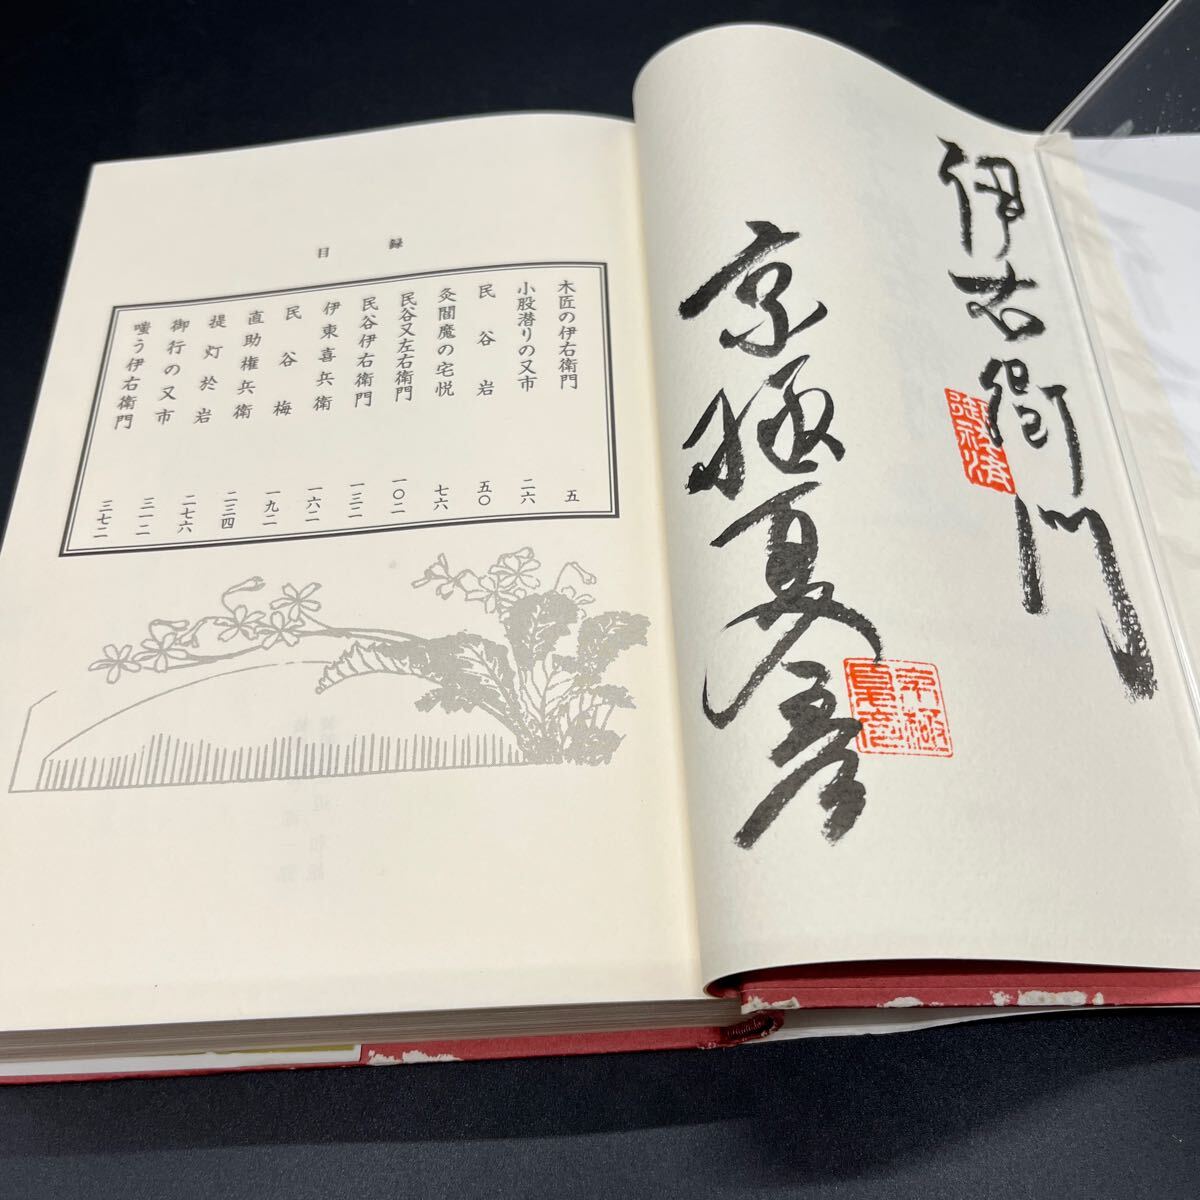 伊右衛門
京極夏彦
京極
夏彦
目録
木匠の伊右衛門 五
小股潜りの又市 二六
民谷岩 五〇
灸閻魔の宅悦 七六
民谷又左衛門 一〇二
民谷伊右衛門 一三二
伊東喜兵衛 一六二
民谷梅 一九二
直助権兵衛 二三四
提灯於岩 二七六
御行の又市 三一二
嗤う伊右衛門 三七二